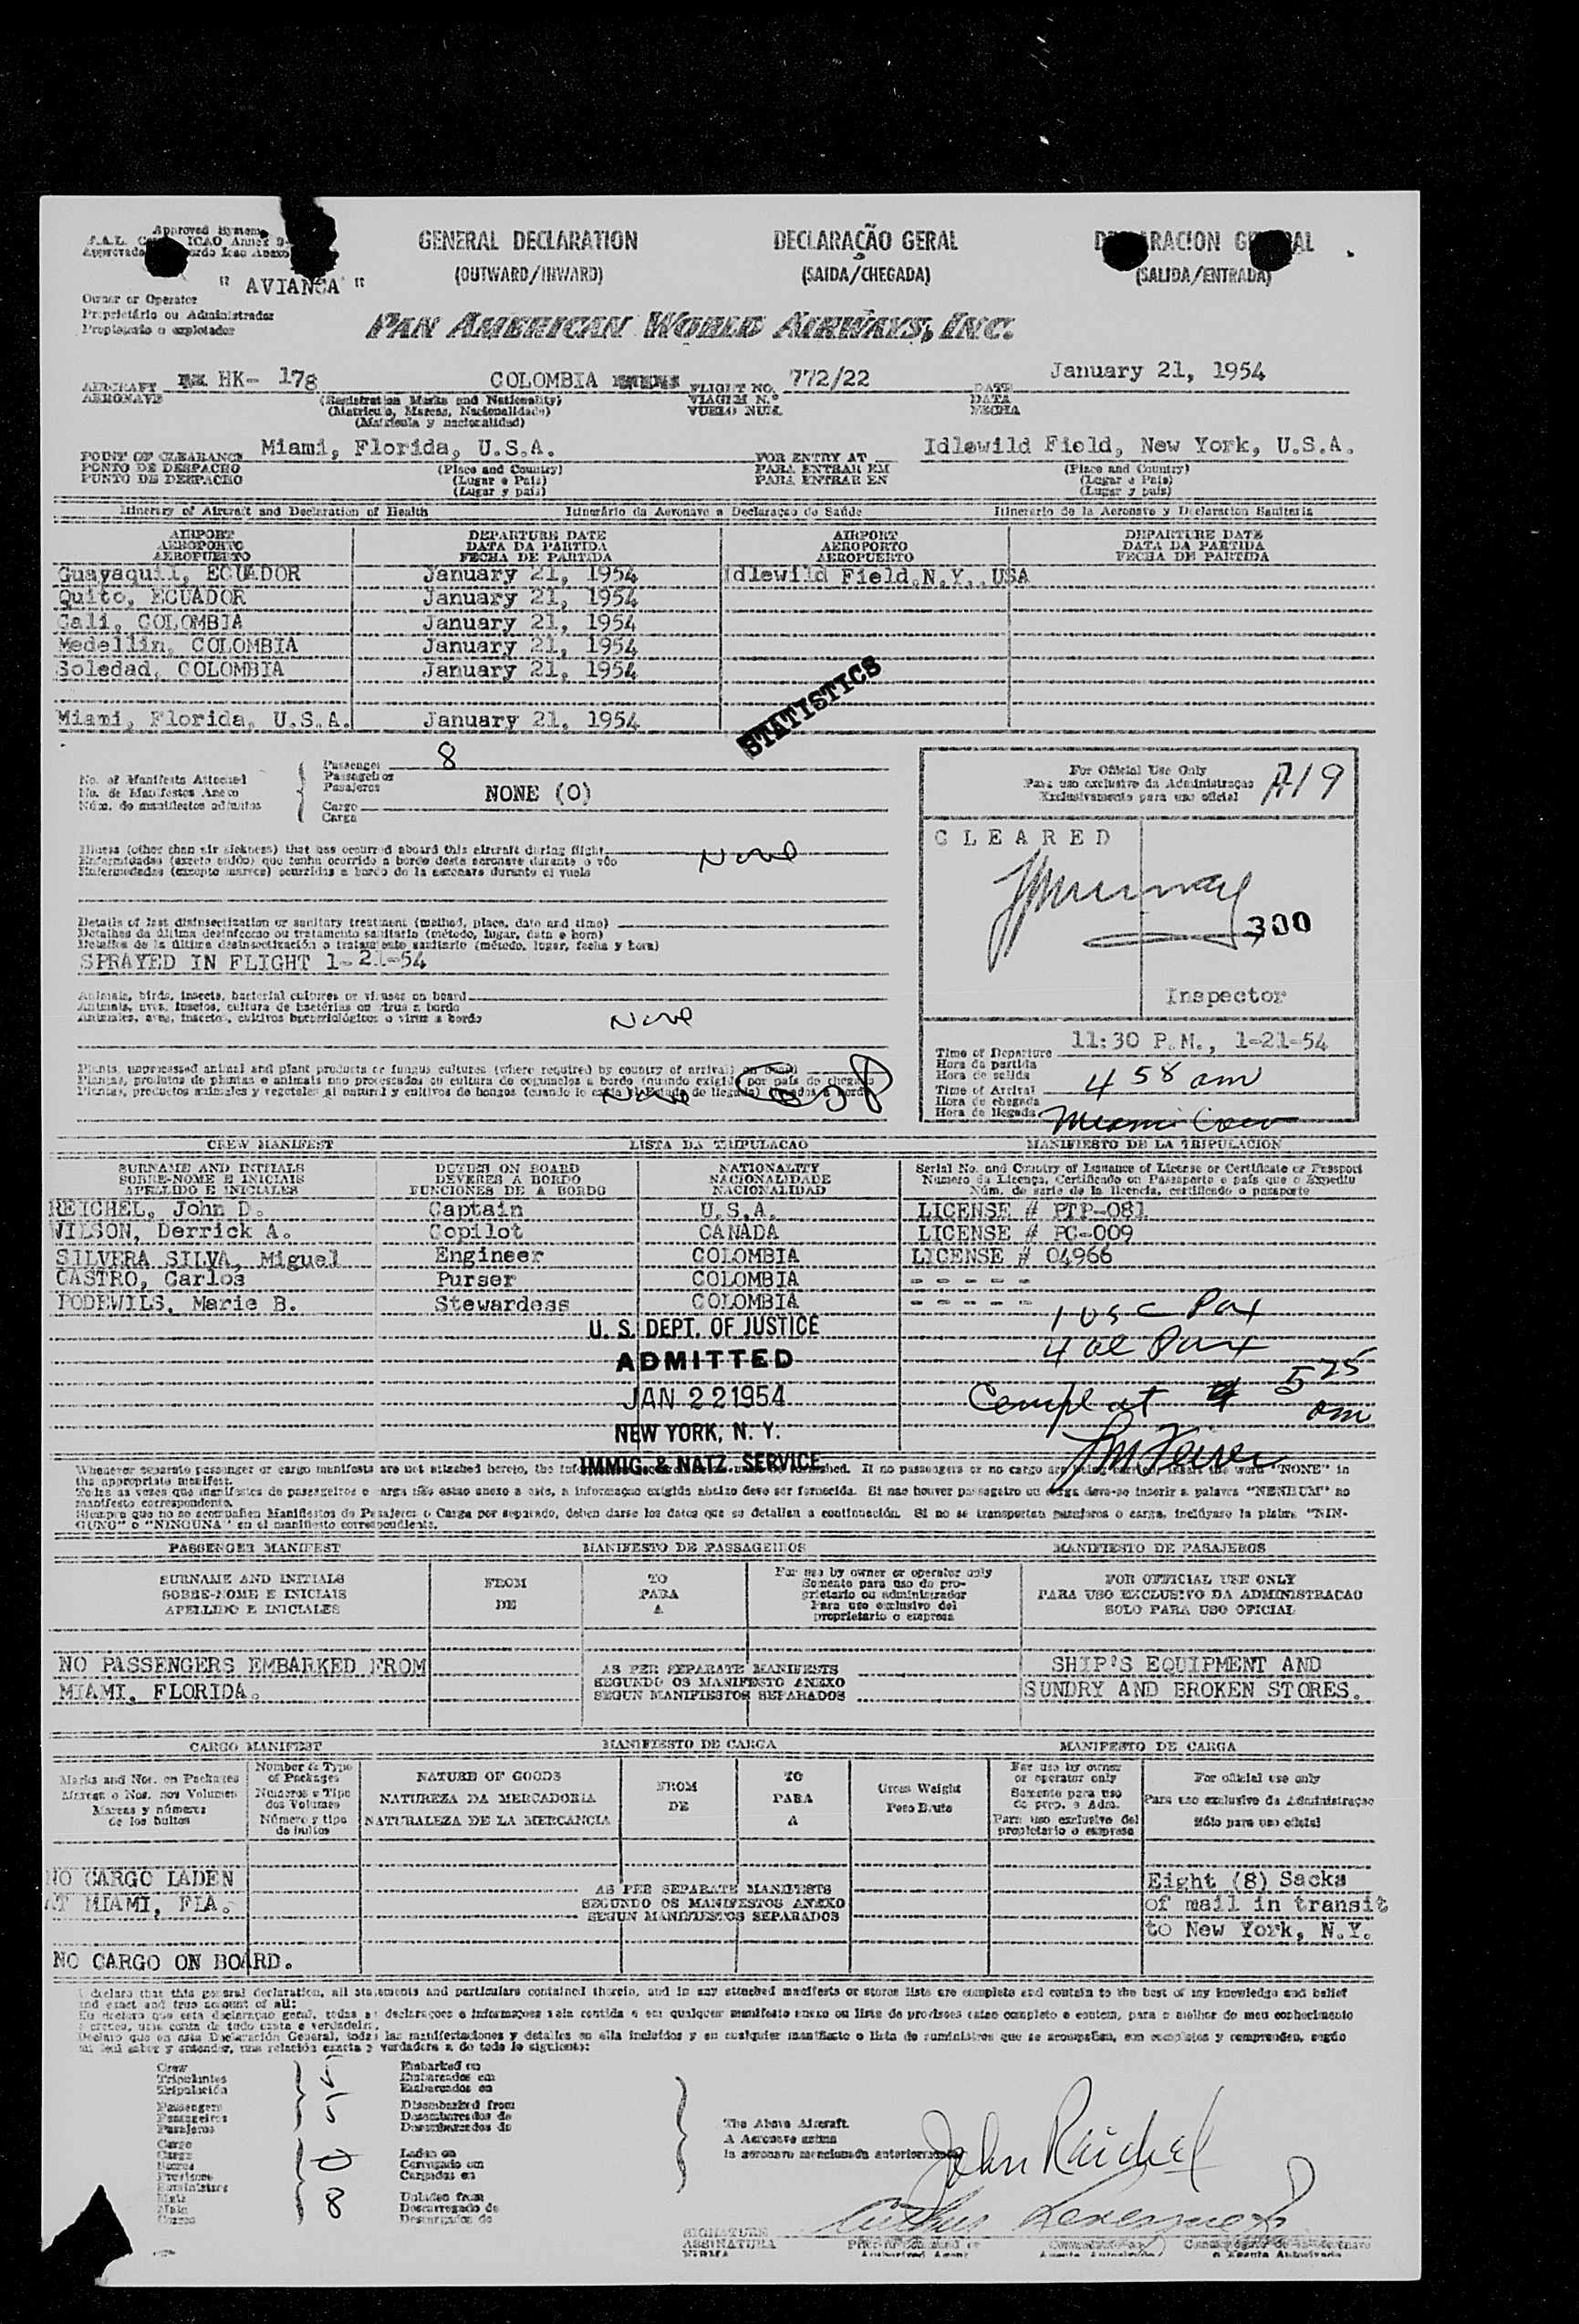 Approved System
ICAO Annex 9
" AVIANCA "
GENERAL DECLARATION
(OUTWARD/INWARD)
DECLARAÇÃO GERAL
(SAIDA/CHEGADA)
(SALIDA/ENTRADA)
Owner or Operator
Proprietário ou Administrador
Propietario o explotador
PAN AMERICAN WORLD AIRWAYS, INC.
AIRCRAFT HK- 178 COLOMBIA FLIGHT NO. 772/22 DATE January 21, 1954
AERONAVE (Registration Marks and Nationality) VIAGEM N.º DATA
(Matricula, Marcas, Nacionalidade) VUELO NUM. FECHA
(Matricula y nacionalidad)
POINT OF CLEARANCE Miami, Florida, U.S.A. FOR ENTRY AT Idlewild Field, New York, U.S.A.
PONTO DE DESPACHO (Place and Country) PARA ENTRAR EM (Place and Country)
PUNTO DE DESPACHO (Lugar e Pais) PARA ENTRAR EN (Lugar e Pais)
(Lugar y pais) (Lugar y pais)
Itinerary of Aircraft and Declaration of Health Itinerário da Aeronave e Declaração de Saúde Itinerario de la Aeronave y Declaracion Sanitaria
AIRPORT DEPARTURE DATE AIRPORT DEPARTURE DATE
AEROPORTO DATA DA PARTIDA AEROPORTO DATA DA PARTIDA
AEROPUERTO FECHA DE PARTIDA AEROPUERTO FECHA DE PARTIDA
Guayaquil, ECUADOR January 21, 1954 Idlewild Field, N.Y., USA
Quito, ECUADOR January 21, 1954
Cali, COLOMBIA January 21, 1954
Medellin, COLOMBIA January 21, 1954
Soledad, COLOMBIA January 21, 1954
STATISTICS
Miami, Florida, U.S.A. January 21, 1954
No. of Manifests Attached
No. de Manifestos Anexo
Núm. de manifiestos adjuntos
Passenger 8
Passageiros
Pasajeros
Cargo NONE (0)
Carga
For Official Use Only
Para uso exclusivo da Administraçao
Exclusivamente para uso oficial
A19
CLEARED
300
Inspector
Illness (other than air sickness) that has occurred aboard this aircraft during flight None
Enfermidades (exceto enjôo) que tenha ocorrido a bordo desta aeronave durante o vôo
Enfermedades (excepto mareos) ocurridas a bordo de la aeronave durante el vuelo
Details of last disinsectization or sanitary treatment (method, place, date and time)
Detalhes da última desinfecção ou tratamento sanitario (método, lugar, data e hora)
Detalles de la última desinsectización o tratamiento sanitario (método, lugar, fecha y hora)
SPRAYED IN FLIGHT 1-21-54
Animals, birds, insects, bacterial cultures or viruses on board
Animais, aves, insetos, cultura de bactérias ou virus a bordo
Animales, aves, insectos, cultivos bacteriológicos o virus a bordo
None
Time of Departure 11:30 P.M., 1-21-54
Hora da partida
Hora de salida
Time of Arrival 4 58 am
Hora da chegada
Hora de llegada Miami Crew
Plants, unprocessed animal and plant products or fungus cultures (where required by country of arrival) on board
Plantas, produtos de plantas e animais nao processados ou cultura de cogumelos a bordo (quando exigido por pais de chegada)
None
CREW MANIFEST LISTA DA TRIPULACAO MANIFIESTO DE LA TRIPULACION
SURNAME AND INITIALS DUTIES ON BOARD NATIONALITY Serial No. and Country of Issuance of License or Certificate or Passport
SOBRE-NOME E INICIAIS DEVERES A BORDO NACIONALIDADE Numero da Licença, Certificado ou Passaporte e pais que o Expediu
APELLIDO E INICIALES FUNCIONES DE A BORDO NACIONALIDAD Núm. de serie de la licencia, certificado o pasaporte
REICHEL, John D. Captain U.S.A. LICENSE # PTP-081
WILSON, Derrick A. Copilot CANADA LICENSE # PC-009
SILVERA SILVA, Miguel Engineer COLOMBIA LICENSE # 04966
CASTRO, Carlos Purser COLOMBIA - - - - -
PODEWILS, Marie B. Stewardess COLOMBIA - - - - -
1 USC Pax
4 al Pax
Compl at 5 25 am
U. S. DEPT. OF JUSTICE
ADMITTED
JAN 22 1954
NEW YORK, N. Y.
IMMIG. & NATZ. SERVICE
Whenever separate passenger or cargo manifests are not attached hereto, the furnished. If no passengers or no cargo are being carried, insert the word "NONE" in
the appropriate manifest.
Todas as vezes que manifestos de passageiros e carga não estao anexo a este, a informaçao exigida abaixo deve ser fornecida. Si nao houver passageiro ou carga deve-se inserir a palavra "NENHUM" no
manifesto correspondente.
Siempre que no se acompañen Manifiestos de Pasajeros o Carga por separado, deben darse los datos que se detallan a continuación. Si no se transportan pasajeros o carga, inclúyase la palabra "NIN-
GUNO" o "NINGUNA" en el manifiesto correspondiente.
PASSENGER MANIFEST MANIFESTO DE PASSAGEIROS MANIFIESTO DE PASAJEROS
SURNAME AND INITIALS FROM TO For use by owner or operator only FOR OFFICIAL USE ONLY
SOBRE-NOME E INICIAIS DE PARA Somente para uso do proprietario ou administrador PARA USO EXCLUSIVO DA ADMINISTRACAO
APELLIDO E INICIALES A Para uso exclusivo del proprietario o empresa SOLO PARA USO OFICIAL
NO PASSENGERS EMBARKED FROM AS PER SEPARATE MANIFESTS SHIP'S EQUIPMENT AND
MIAMI, FLORIDA. SEGUNDO OS MANIFESTO ANEXO SUNDRY AND BROKEN STORES.
SEGUN MANIFIESTOS SEPARADOS
CARGO MANIFEST MANIFIESTO DE CARGA MANIFESTO DE CARGA
Marks and Nos. on Packages Number & Type of Packages NATURE OF GOODS FROM TO Gross Weight For use by owner or operator only For official use only
Marcas e Nos. nos Volumes Numeros e Tipo dos Volumes NATUREZA DA MERCADORIA DE PARA Peso Bruto Somente para uso do prop. e Adm. Para uso exclusivo da Administraçao
Marcas y números de los bultos Número y tipo de bultos NATURALEZA DE LA MERCANCIA A Para uso exclusivo del propietario o empresa Sólo para uso oficial
NO CARGO LADEN AS PER SEPARATE MANIFESTS Eight (8) Sacks
AT MIAMI, FLA. SEGUNDO OS MANIFESTOS ANEXO of mail in transit
SEGUN MANIFIESTOS SEPARADOS to New York, N.Y.
NO CARGO ON BOARD.
I declare that this general declaration, all statements and particulars contained therein, and in any attached manifests or stores lists are complete and contain to the best of my knowledge and belief
and exact and true account of all:
Crew 5 Embarked on
Tripulantes Embarcados em
Tripulación Embarcados en
Passengers 5 Disembarked from
Passageiros Desembarcados de
Pasajeros Desembarcados de
Cargo 0 Laden on
Carga Carregado em
Cargados en
8 Unladen from
Descarregado de
Descargados de
The Above Aircraft
A Aeronave acima
la aeronave mencionada anteriormente
John Reichel
SIGNATURE
ASSINATURA
FIRMA